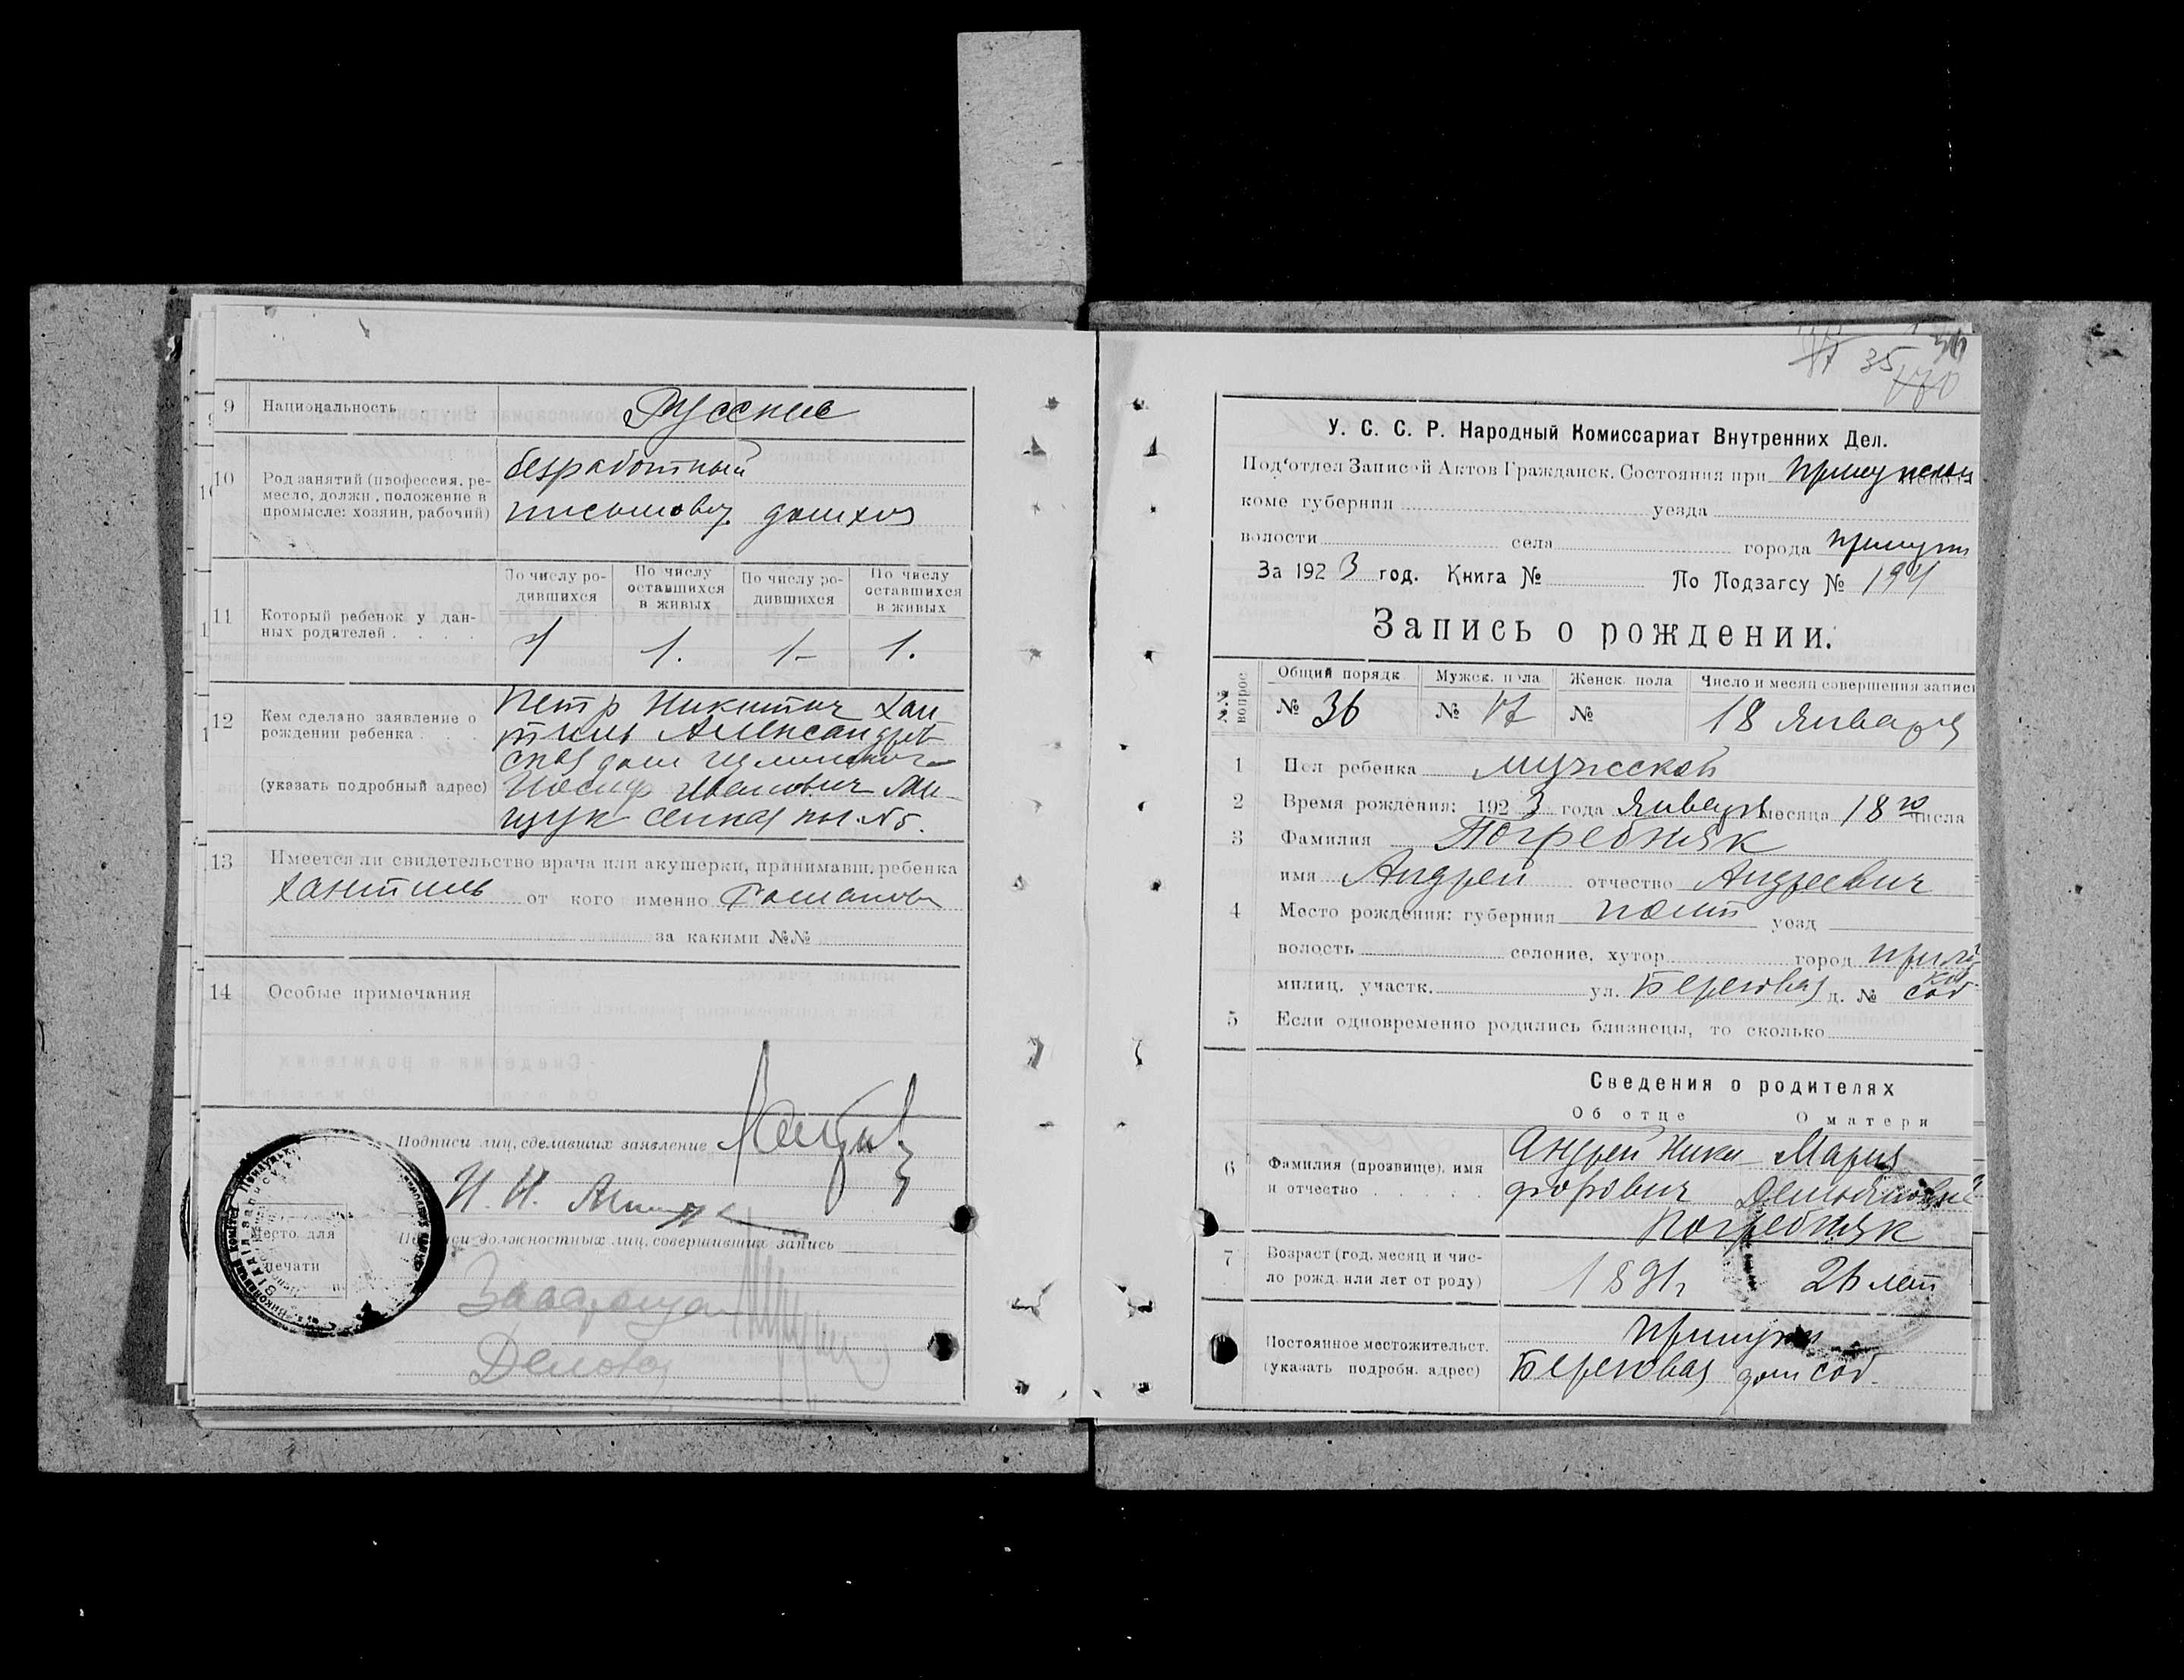 9 Национальность
Русские
10 Род занятий (профессия, ре-
месло, должн., положение в
промысле: хозяин, рабочий)
безработный
домхоз
11 Который ребенок у дан-
ных родителей . . . .
По числу ро-
дившихся
По числу
оставшихся
в живых
По числу ро-
дившихся
По числу
оставшихся
в живых
1 1. 1- 1.
12 Кем сделано заявление о
рождении ребенка . .
(указать подробный адрес)
Петр Никитич Хан
тиль Александров
ская дом
Иосиф Иванович
сенная №5.
13 Имеется ли свидетельство врача или акушерки, принимавш. ребенка
Хантиль от кого именно
за какими №№
14 Особые примечания
Подписи лиц, сделавших заявление
Подписи должностных лиц, совершивших запись
Место для
печати
35 36
У. С. С. Р. Народный Комиссариат Внутренних Дел.
Под'отдел Записей Актов Гражданск. Состояния при
коме губернии уезда
волости села города Прилуки
За 1923 год. Книга № По Подзагсу № 194
Запись о рождении.
№№ вопрос
Общий порядк
Мужск. пола
Женск. пола
Число и месяц совершения записи
№ 36 № 17 № 18 Января
1 Пол ребенка мужской
2 Время рождения: 1923 года Января месяца 18 го числа
3 Фамилия Погребняк
имя Андрей отчество Андреевич
4 Место рождения: губерния Полт уезд
волость селение, хутор город Прилу
ки
милиц. участк. ул. Береговая д. № соб
5 Если одновременно родились близнецы, то сколько
Сведения о родителях
Об отце О матери
6 Фамилия (прозвище), имя
и отчество . . . . .
Андрей Ники
форович
Мария
Демьяновна
Погребняк
7 Возраст (год, месяц и чис-
ло рожд. или лет от роду)
1891г 26 лет
Постоянное местожительст.
(указать подробн. адрес)
Прилуки
Береговая дом соб.